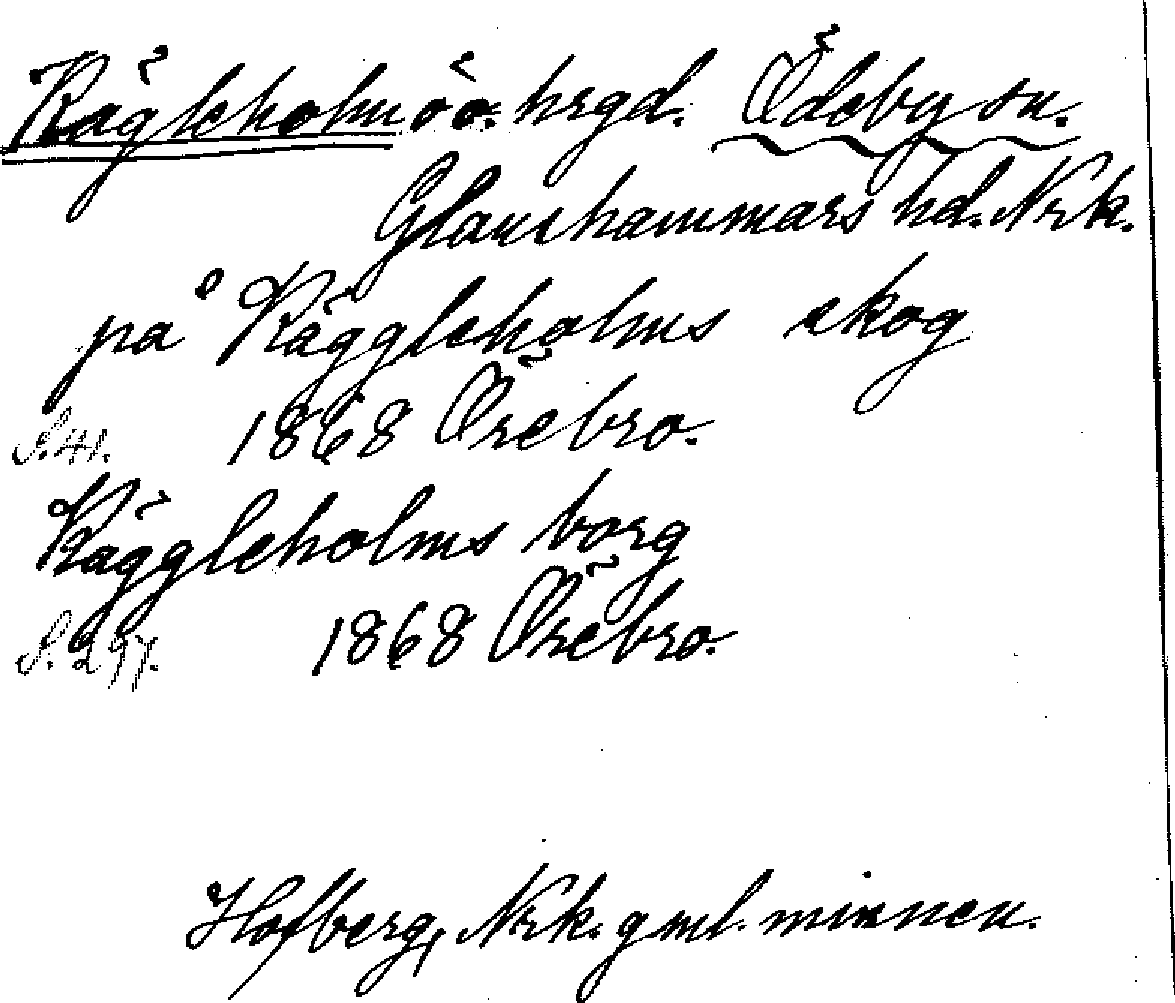 Kägleholm öö. hrgd. Ödeby sn.
Glanshammars hd. Nrk.
på Käggleholms skog
S. 41. 1868 Örebro.
Käggleholms borg
S. 297. 1868 Örebro.
Hofberg, Nrk. gml. minnen.